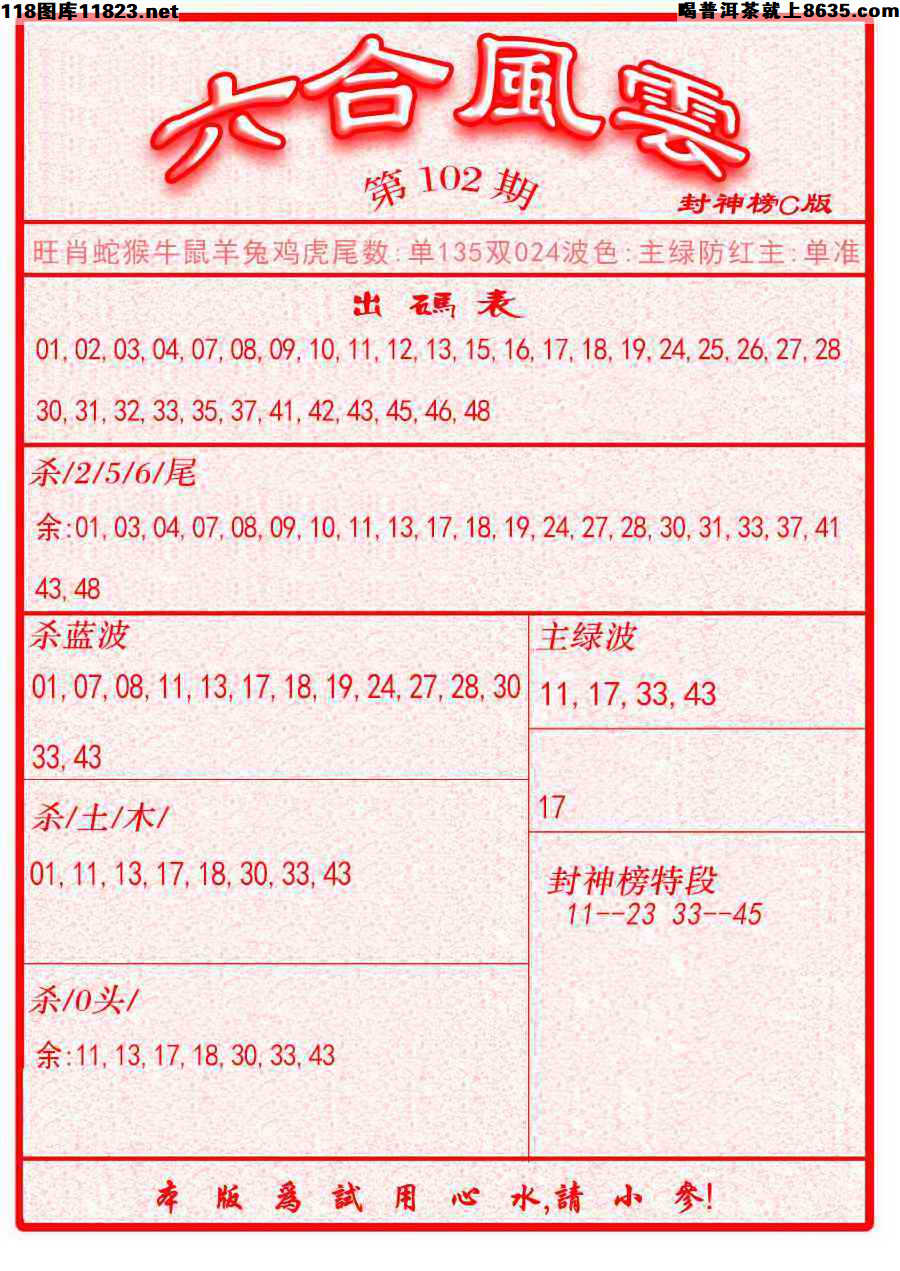 118图库11823.net
喝普洱茶就上8635.com
六合風雲
第102期
封神榜C版
旺肖蛇猴牛鼠羊兔鸡虎尾数:单135双024波色:主绿防红主:单准
出碼表
01,02,03,04,07,08,09,10,11,12,13,15,16,17,18,19,24,25,26,27,28
30,31,32,33,35,37,41,42,43,45,46,48
杀/2/5/6/尾
余:01,03,04,07,08,09,10,11,13,17,18,19,24,27,28,30,31,33,37,41
43,48
杀蓝波
01,07,08,11,13,17,18,19,24,27,28,30
33,43
主绿波
11,17,33,43
17
杀/土/木/
01,11,13,17,18,30,33,43
封神榜特段
11--23 33--45
杀/0头/
余:11,13,17,18,30,33,43
本版爲試用心水,請小參!